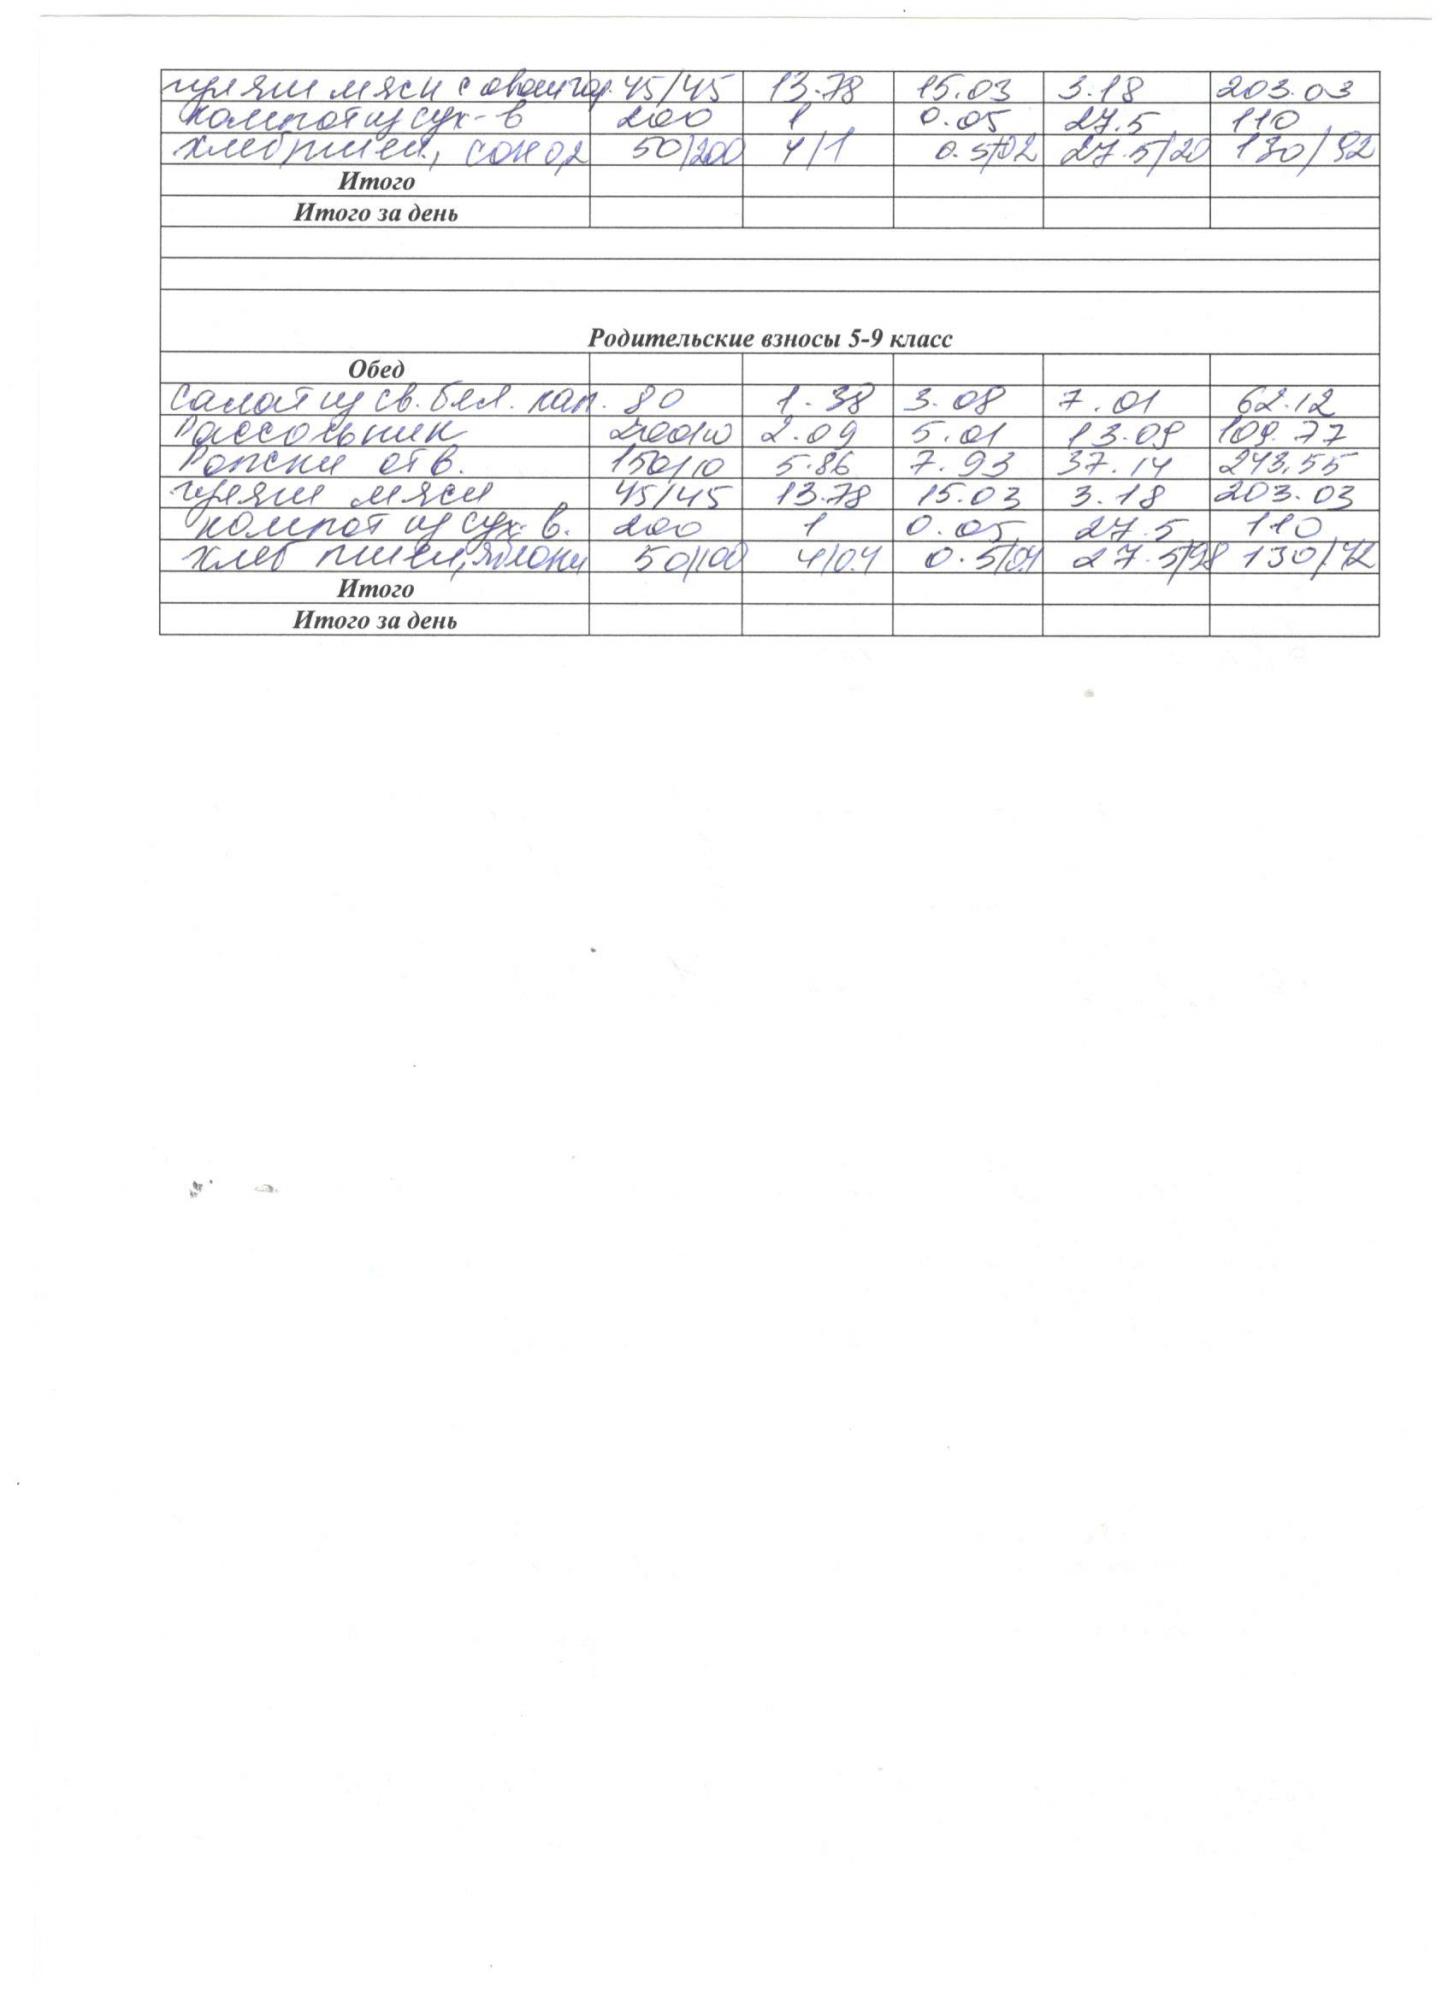 гуляш мясн с овощ гар. 45/45 13.78 15.03 3.18 203.03
компот из сух-в 200 1 0.05 27.5 110
хлеб пшен., сок 0,2 50/200 4/1 0.5/02 27.5/20 130/92
Итого
Итого за день
Родительские взносы 5-9 класс
Обед
салат из св. бел. кап. 80 1.38 3.08 7.01 62.12
Рассольник 200/10 2.09 5.01 13.09 109.77
Рожки отв. 150/10 5.86 7.93 37.14 243,55
гуляш мясн 45/45 13.78 15.03 3.18 203.03
компот из сух-в. 200 1 0.05 27.5 110
хлеб пшен, яблоки 50/100 4/0.4 0.5/04 27.5/98 130/42
Итого
Итого за день